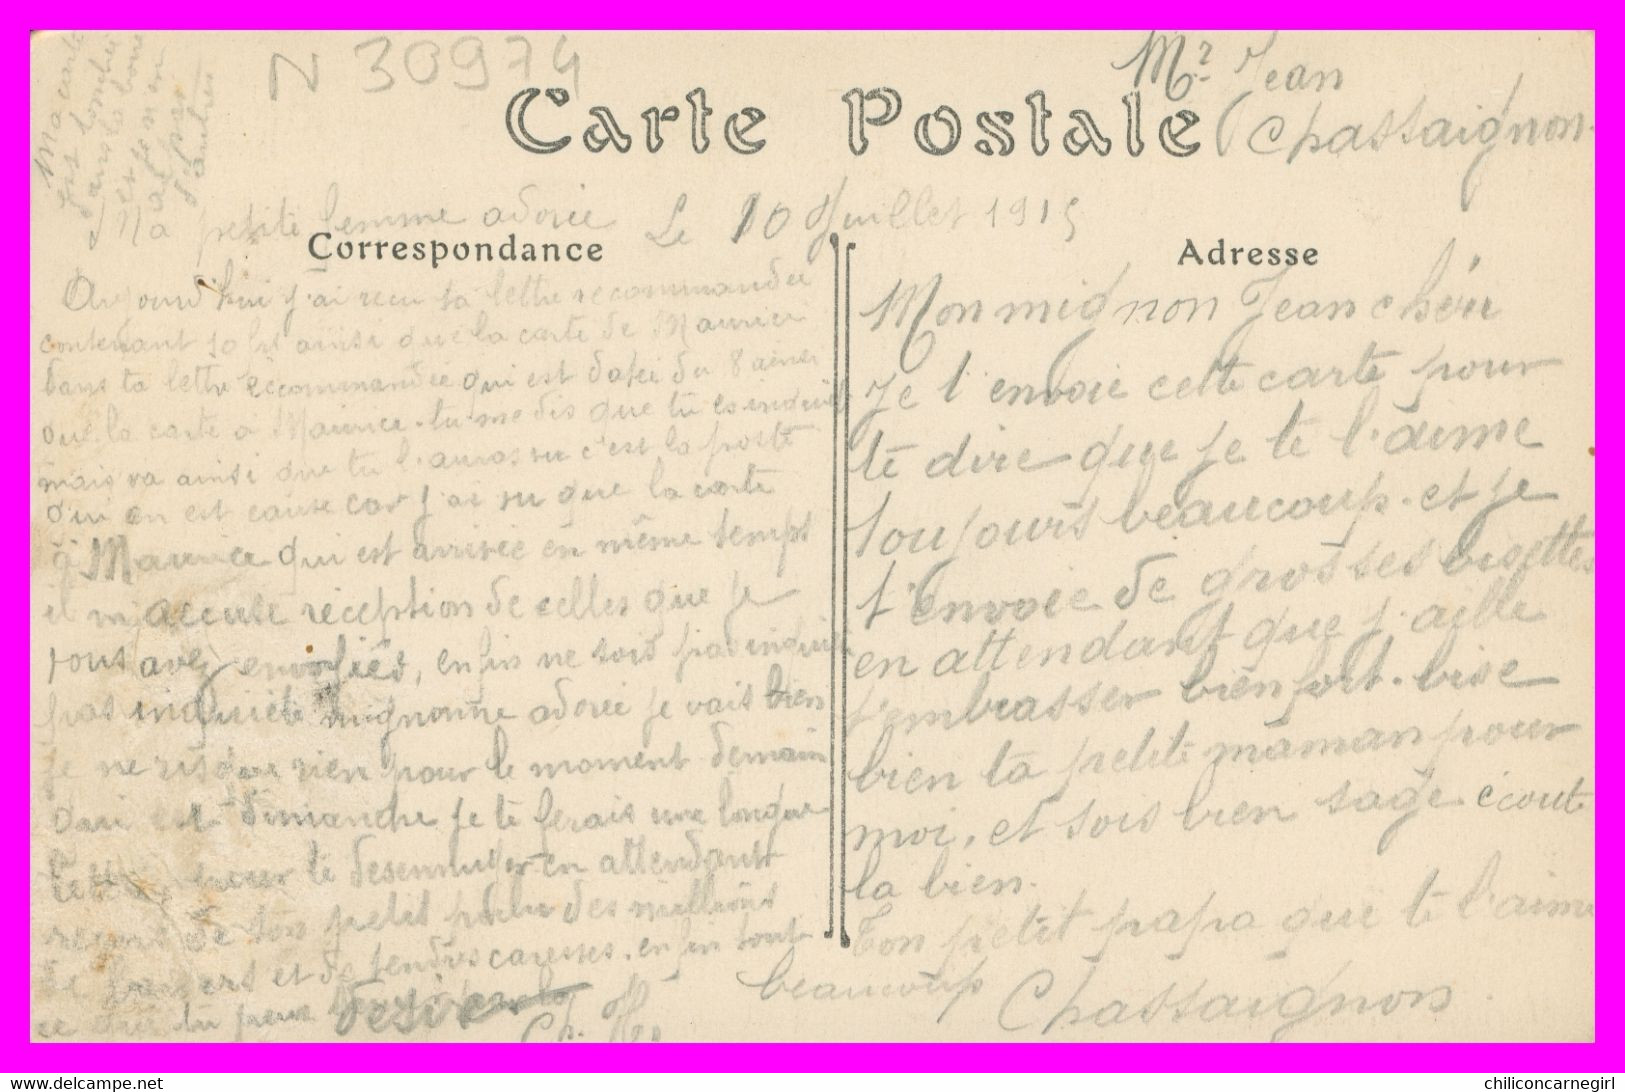 Ma carte
est tombée
dans la boue
et je n'en
ai pas
d'autres
N 30974
Carte Postale
Mr Jean
Chassaignon
Ma petite femme adorée Le 10 Juillet 1915
Correspondance
Aujourd'hui j'ai reçu ta lettre recommandée
contenant 10 frs ainsi que la carte de Maurice
dans ta lettre recommandée qui est datée du 8 ainsi
que la carte a Maurice. tu me dis que tu es inquiet
mais va ainsi que tu l'auras vu c'est la poste
qui en est cause car j'ai vu que la carte
à Maurice qui est arrivée en même temps
il m'accuse réception de celles que je
vous avez envoyiés, enfin ne sois pas inquiet
pas inquiète mignonne adorée je vais bien
je ne risque rien pour le moment demain
qui est dimanche je te ferais une longue
lettre pour te desennuyer en attendant
reçois de ton petit poulu des millions
de baisers et de tendres caresses. enfin tout
ce que tu peux désirer
Ch. H.
Adresse
Mon mignon Jean chéri
Je t'envoie cette carte pour
te dire que je te l'aime
toujours beaucoup. et je
t'envoie de grosses bisettes
en attendant que j'aille
t'embrasser bien fort. bise
bien ta petite maman pour
moi. et sois bien sage écoute
la bien.
Ton petit papa que te l'aime
beaucoup Chassaignon.
https://www.delcampe.net
chiliconcarnegirl